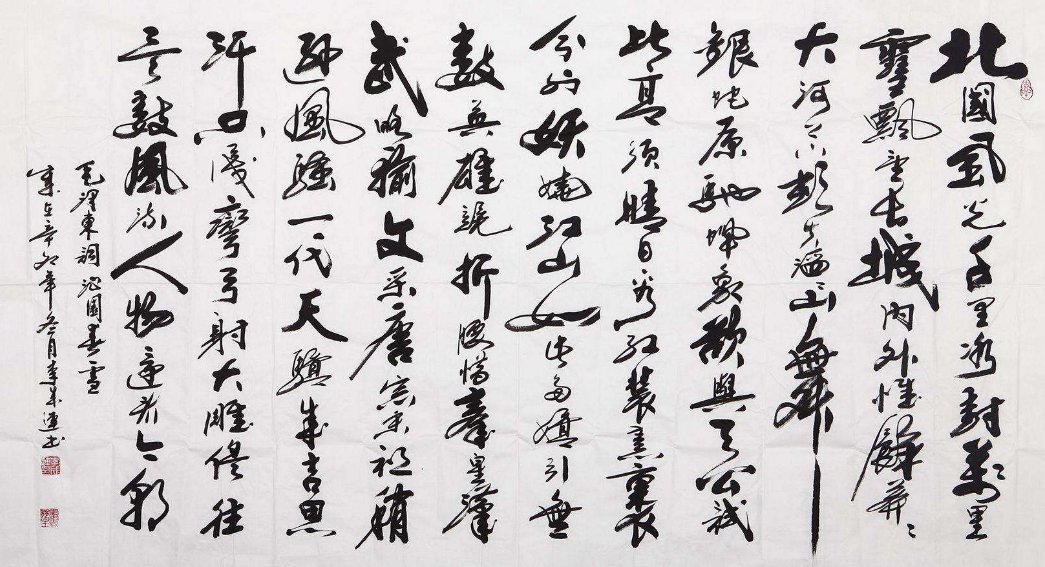 北國風光千里冰封萬里
雪飄望長城內外惟餘莽〻
大河上下頓失滔〻山舞
銀蛇原馳蠟象欲與天公試
比高須晴日看紅裝素裹
分外妖嬈江山如此多嬌引無
數英雄競折腰惜秦皇漢
武略輸文采唐宗宋祖稍
遜風騷一代天驕成吉思
汗只識彎弓射大雕俱往
矣數風流人物還看今朝
毛澤東詞沁園春雪
歲在辛卯年冬月李書